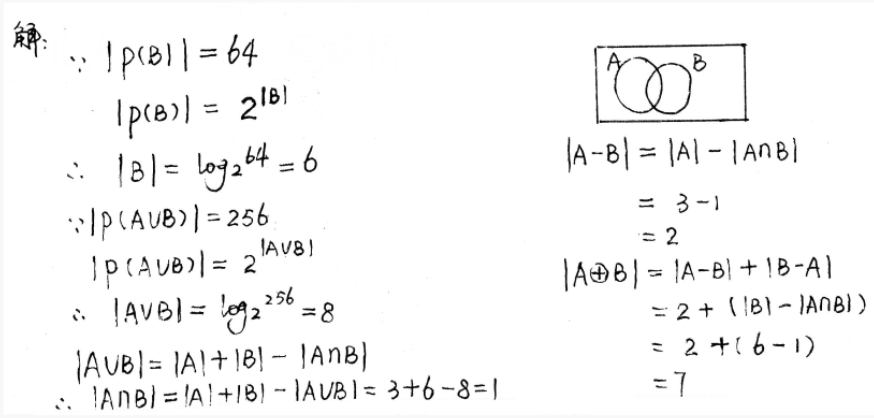 解:
∵ |P(B)| = 64
|P(B)| = 2^|B|
∴ |B| = log₂64 = 6
∵ |P(A∪B)| = 256
|P(A∪B)| = 2^|A∪B|
∴ |A∪B| = log₂256 = 8
|A∪B| = |A| + |B| - |A∩B|
∴ |A∩B| = |A| + |B| - |A∪B| = 3+6-8=1
A B
|A-B| = |A| - |A∩B|
= 3-1
= 2
|A⊕B| = |A-B| + |B-A|
= 2 + (|B| - |A∩B|)
= 2 + (6-1)
= 7